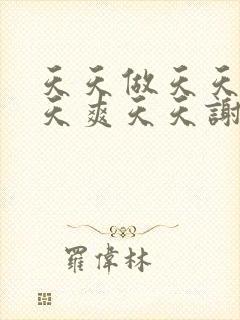 天天做天天
天爽天天謝
羅偉林